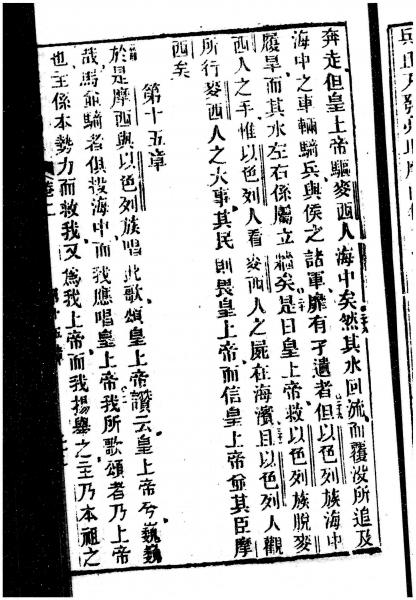 奔走但皇上帝驅麥西人海中矣然其水回流而覆沒所追及
海中之車輛騎兵與侯之諸軍靡有孑遺者但以色列族海中
履旱而其水左右係屬立牆矣是日皇上帝救以色列族脫麥
西人之手惟以色列人看麥西人之屍在海濱且以色列人觀
所行麥西人之大事其民則畏皇上帝而信皇上帝並其臣摩
西矣
第十五章
於是摩西與以色列族唱此歌頌皇上帝讚云皇上帝兮巍巍
哉馬並騎者俱投海中而我應唱皇上帝我所歌頌者乃上帝
也主係本勢力而救我又為我上帝而我揚舉之主乃本祖之